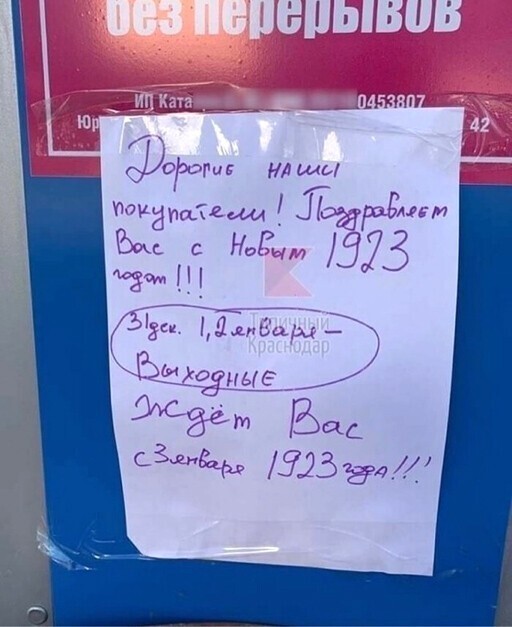 без перерывов
ИП Ката
0453807
Юр
42
Дорогие наши
покупатели! Поздравляем
Вас с Новым 1923
годом!!!
31 дек. 1, 2 января –
Выходные
Ждём Вас
с 3 января 1923 года!!!
Типичный
Краснодар